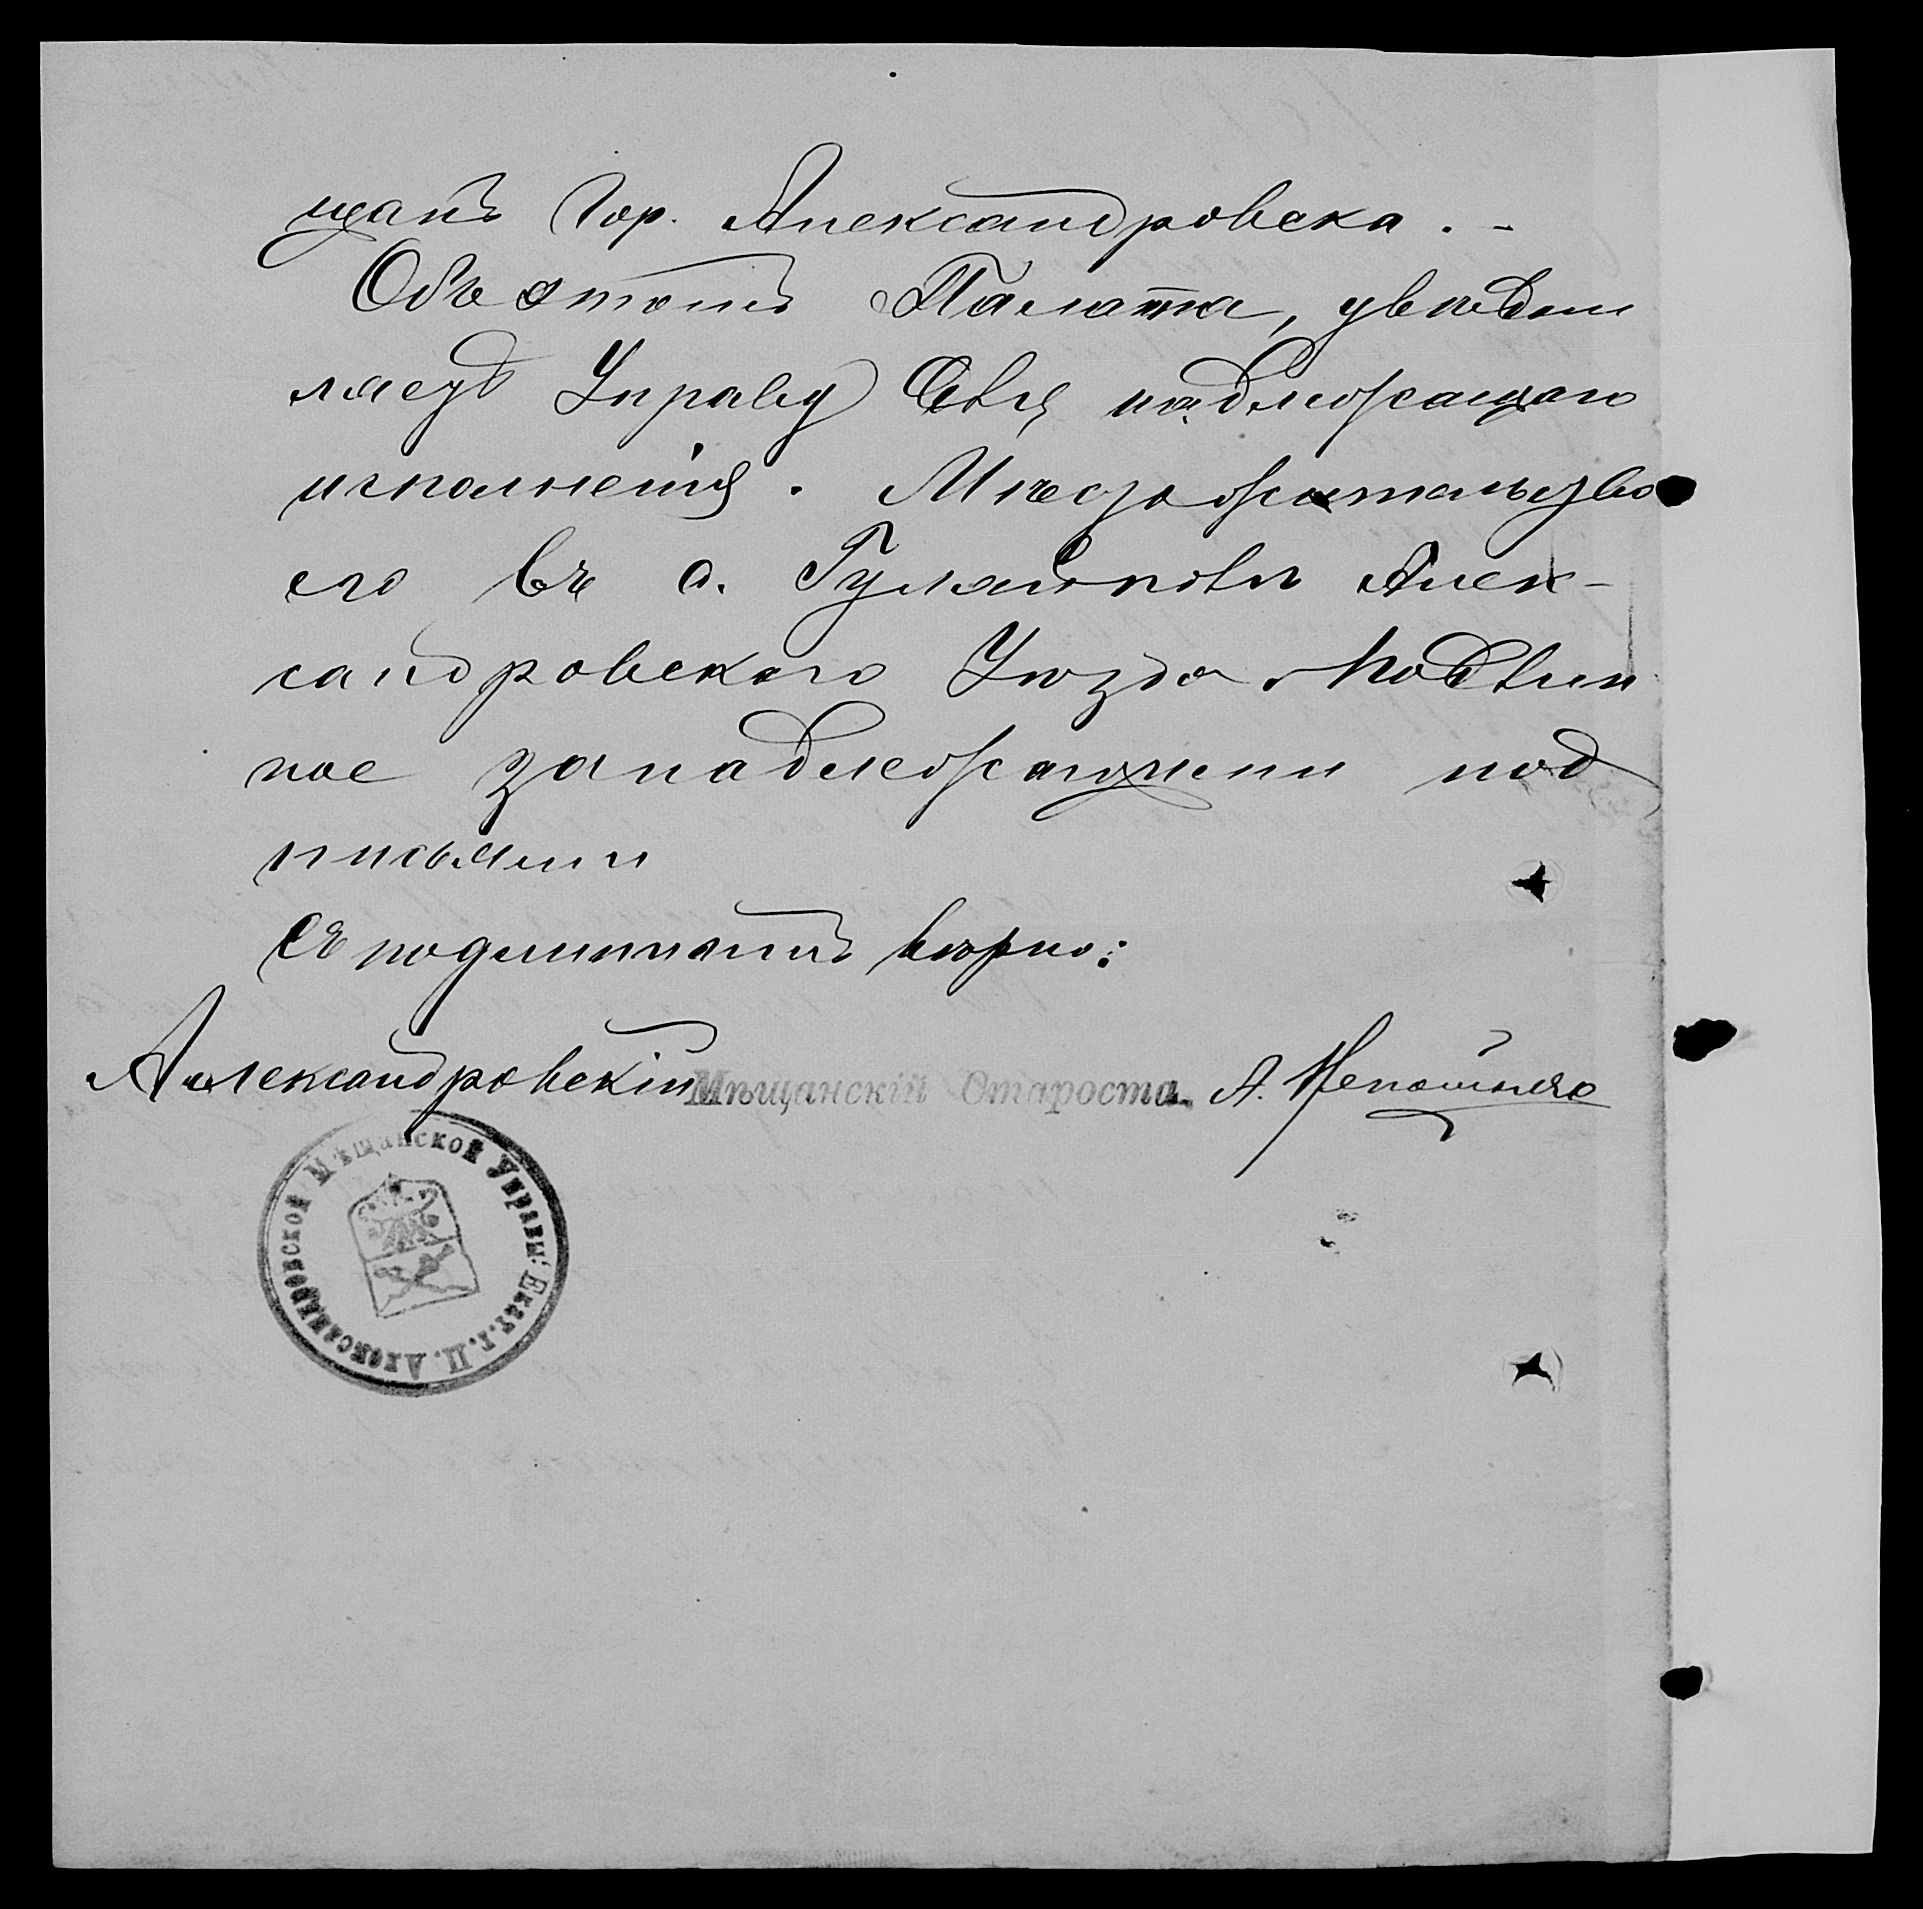 щанъ гор. Александровска. -
Объ этомъ Палата, увѣдом
ляетъ Управу для надлежащаго
исполненія. Мѣстожительство
его въ с. Гуляйполѣ Алек-
сандровскаго Уѣзда. Подлин
ное за надлежащими под
писями
Съ подлиннымъ вѣрно:
Александровскій Мѣщанскій Староста А.
Александровской Мѣщанской Управы Екат. г. П.